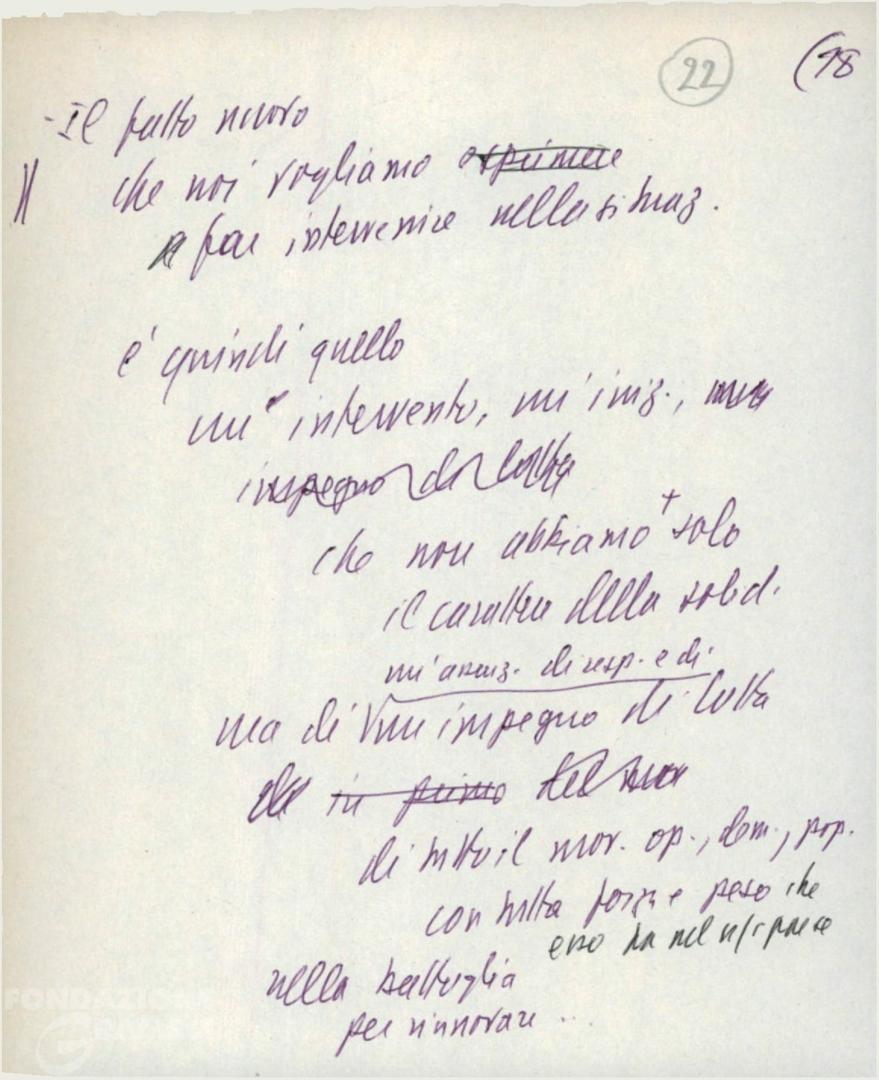 22
(18
- Il fatto nuovo
che noi vogliamo esprimere
far intervenire nella situaz.
e' quindi quello
un' intervento, un' iniz.,
impegno di lotta
che non abbiamo + solo
il carattere della solid.
un' assunz. di resp. e di
ma di un impegno di lotta
in primo
di tutto il mov. op., dem., pop.
con tutta forza e peso che
esso ha nel n/s paese
nella battaglia
per rinnovare ...
FONDAZIO